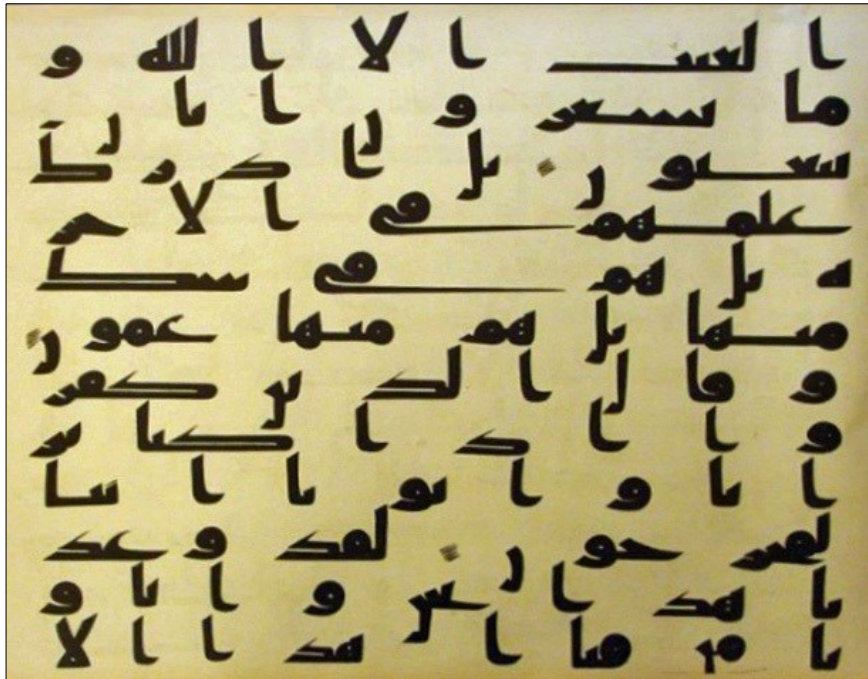 الغيب الا الله و
ما يشعرون ايان
يبعثون بل ادرك
علمهم في الاخر
ة بل هم في شك
منها بل هم منها عمون
و قال الذين كفر
وا اذا كنا تر
ابا و اباونا ا ئنا
لمخرجون لقد وعد
نا هذا نحن و اباو
نا من قبل ان هذا الا